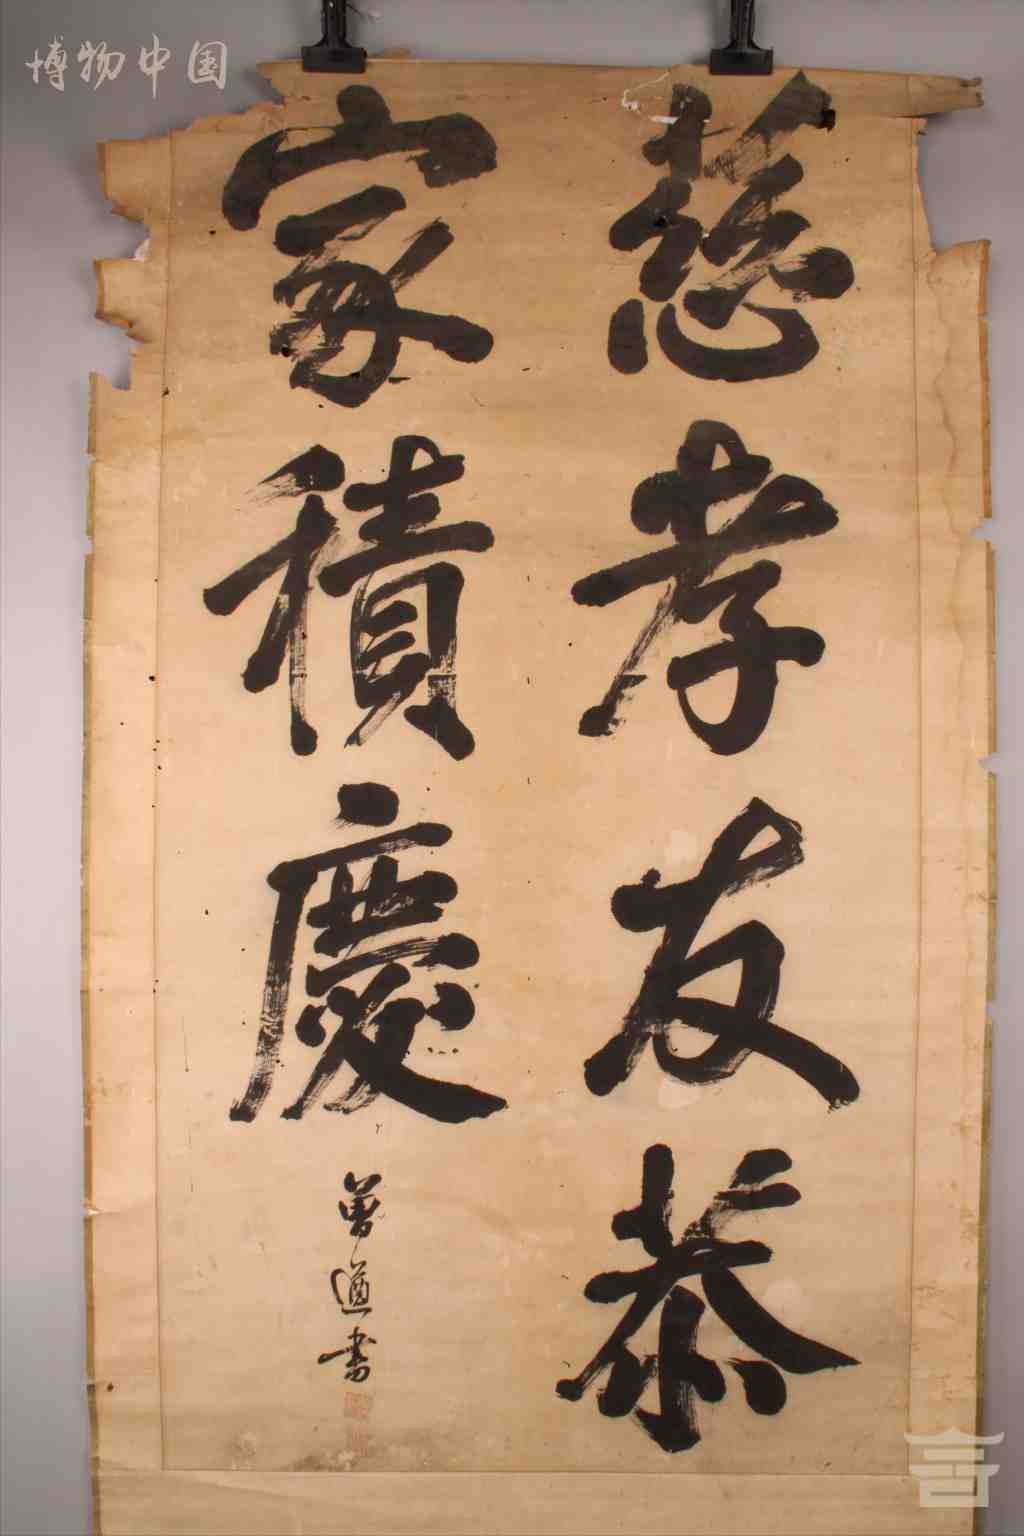 博物中国
慈孝友恭
家積慶
曾道書